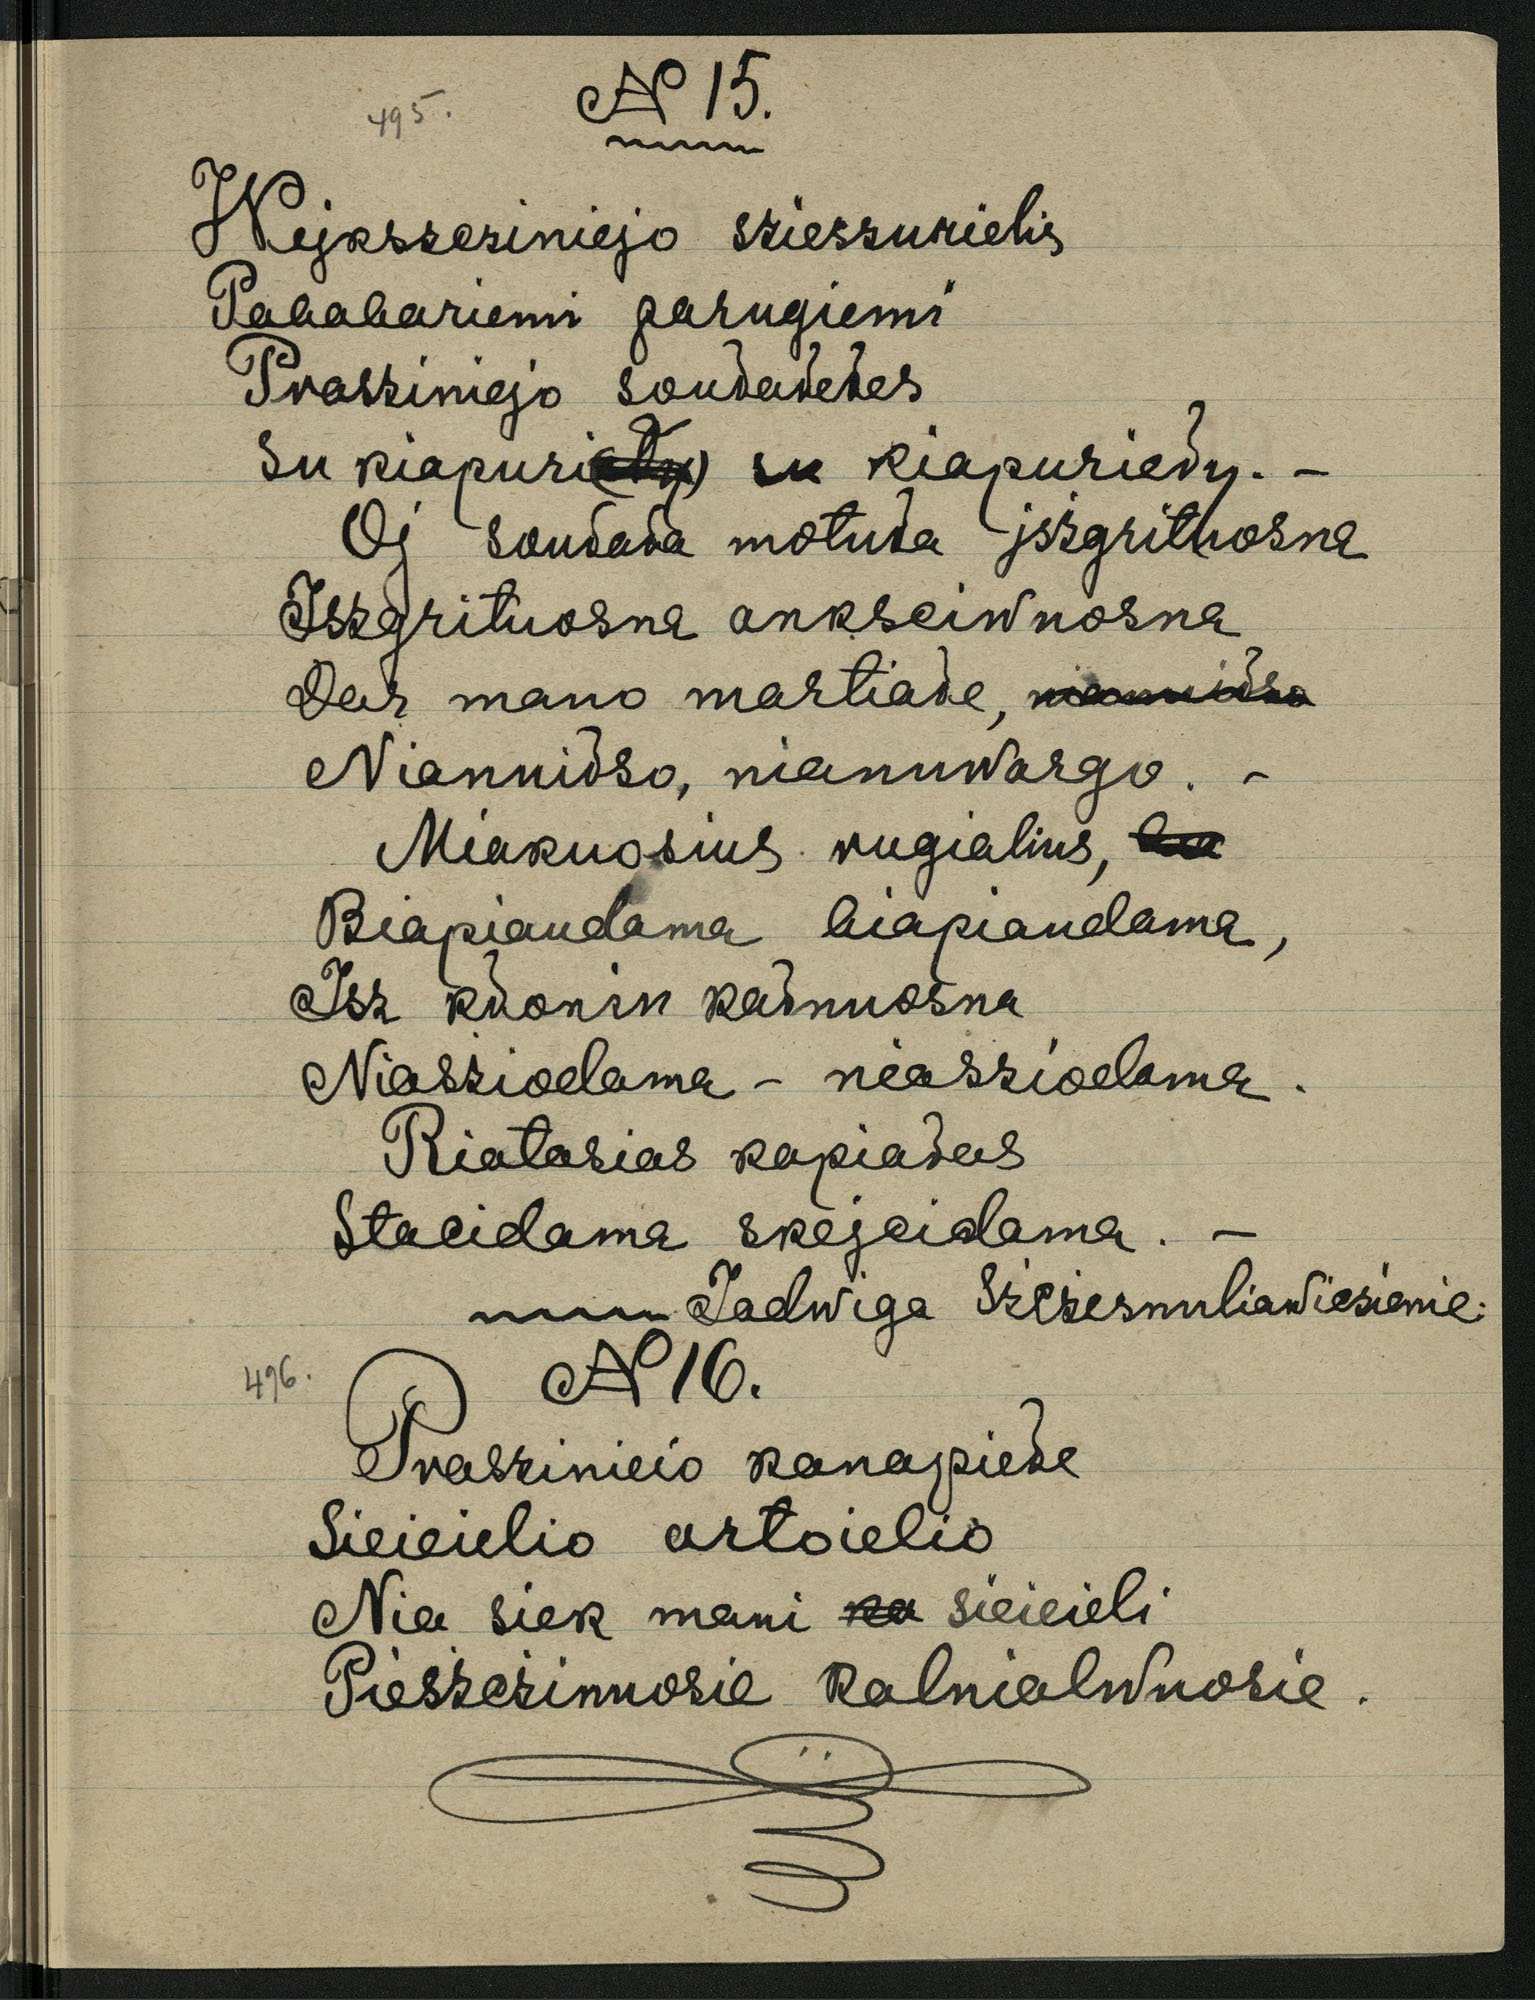 495. № 15.
Wejkszcziniejo szieszurielis
Pababariemi parugiemi
Prasziniejo soułałełes
Su kiapurieły su kiapurieły. –
Oj soułała motuła jszgrituosna
Iszgrituosna anksciwuosna
Dar mano martiałe, nianuiłso
Nianuiłso, nianuwargo. –
Miakuosius rugialius, ba
Biapiaudama biapiaudama,
Isz kłoniu kałnuosna
Niasziodama – niasziodama.
Riatasias kapiałas
Stacidama skejcidama. –
Jadwiga Szczesnuliawiczienie.
496. № 16.
Praszinieio kanapiełe
Sieieielio artoielio
Nia siek mani ka sieieieli
Pieszczinuosie kalnialwuosie.